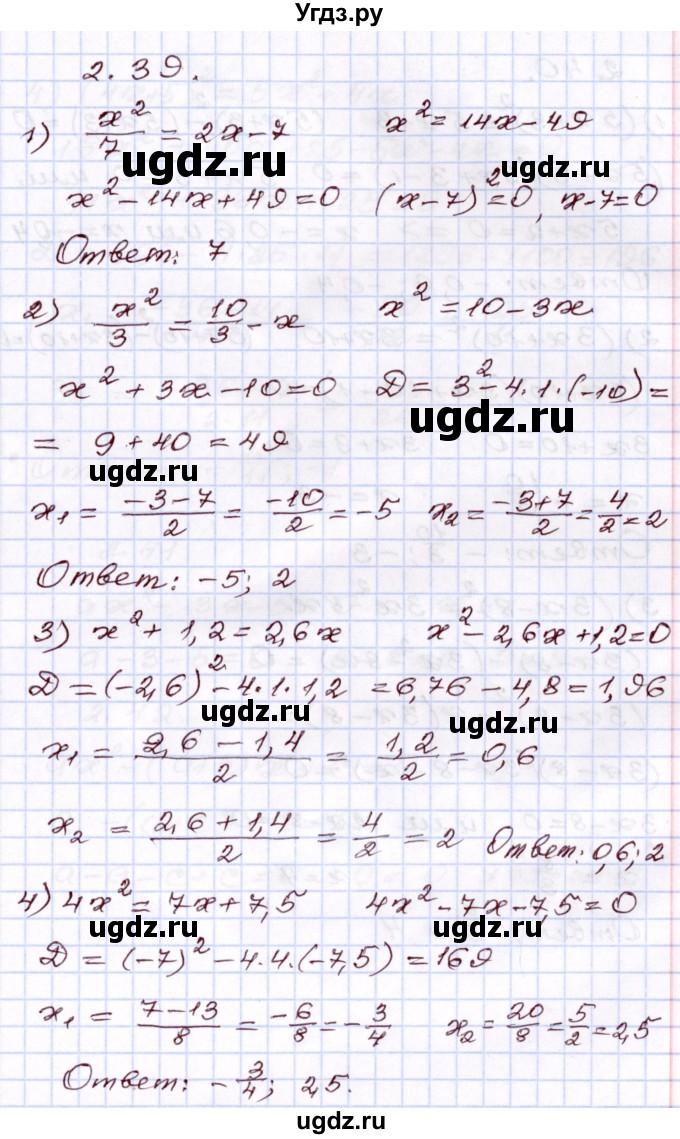 Угдз.ру
2.39.
1) x²/7 = 2x-7    x² = 14x-49
ugdz.ru    ugdz.ru
x² - 14x + 49 = 0    (x-7)² = 0, x-7=0
Ответ: 7
ugdz.ru
2) x²/3 = 10/3 - x    x² = 10-3x
x² + 3x - 10 = 0    D = 3² - 4·1·(-10) =
ugdz.ru
= 9+40 = 49
ugdz.ru
x₁ = (-3-7)/2 = -10/2 = -5    x₂ = (-3+7)/2 = 4/2 = 2
ugdz.ru    ugdz.ru
Ответ: -5; 2
3) x² + 1,2 = 2,6x    x² - 2,6x + 1,2 = 0
D = (-2,6)² - 4·1·1,2 = 6,76 - 4,8 = 1,96
ugdz.ru    ugdz.ru
x₁ = (2,6 - 1,4)/2 = 1,2/2 = 0,6
x₂ = (2,6+1,4)/2 = 4/2 = 2    Ответ: 0,6; 2
ugdz.ru
4) 4x² = 7x + 7,5    4x² - 7x - 7,5 = 0
ugdz.ru    ugdz.ru
D = (-7)² - 4·4·(-7,5) = 169
x₁ = (7-13)/8 = -6/8 = -3/4    x₂ = 20/8 = 5/2 = 2,5
ugdz.ru    ugdz.ru
Ответ: -3/4; 2,5.
ugdz.ru